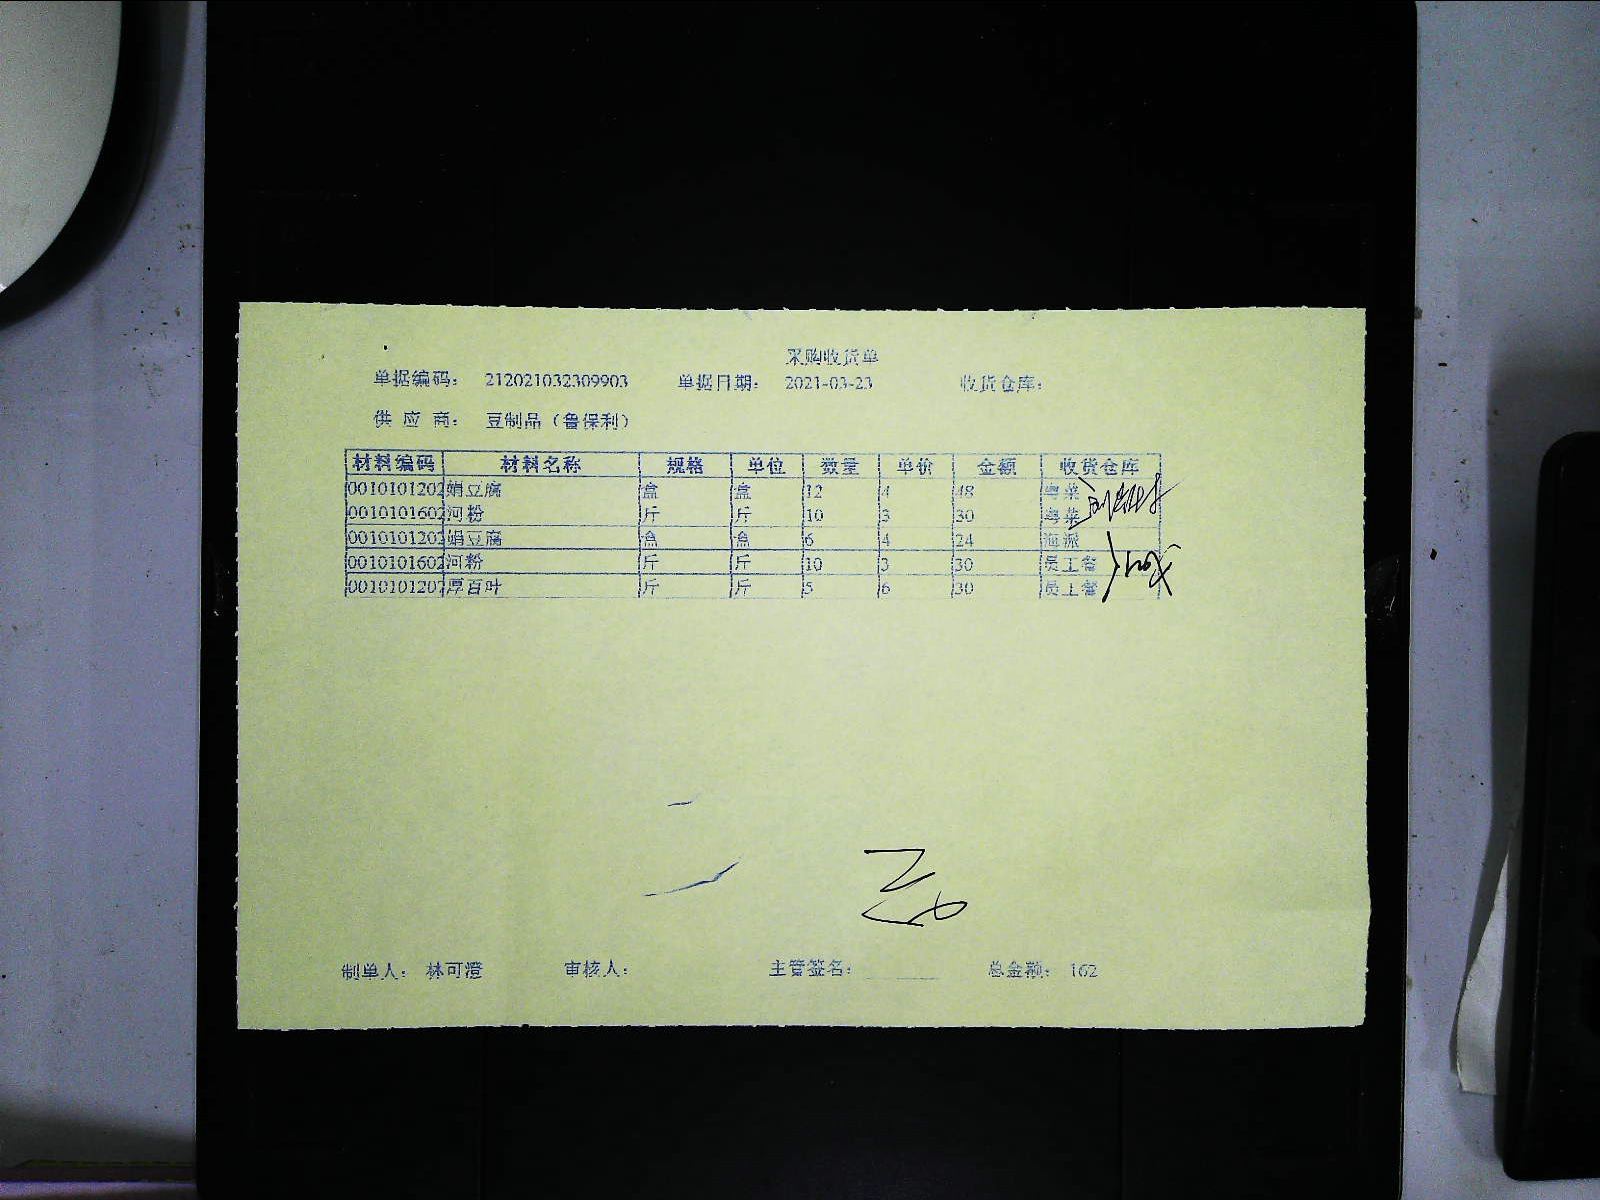 采购收货单
单据编码： 212021032309903 单据日期： 2021-03-23 收货仓库：
供 应 商： 豆制品（鲁保利）
材料编码 材料名称 规格 单位 数量 单价 金额 收货仓库
0010101202 娟豆腐 盒 盒 12 4 48 粤菜
0010101602 河粉 斤 斤 10 3 30 粤菜
0010101202 娟豆腐 盒 盒 6 4 24 海派
0010101602 河粉 斤 斤 10 3 30 员工餐
0010101207 厚百叶 斤 斤 5 6 30 员工餐
制单人： 林可澄 审核人： 主管签名： 总金额： 162